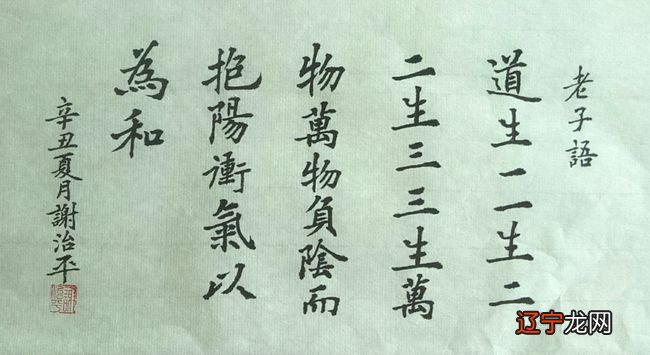 老子語
道生一一生二
二生三三生萬
物萬物負陰而
抱陽衝氣以
為和
辛丑夏月謝治平
辽宁龙网